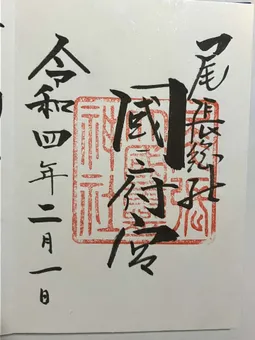 尾張総社
國府宮
令和四年二月一日
神社